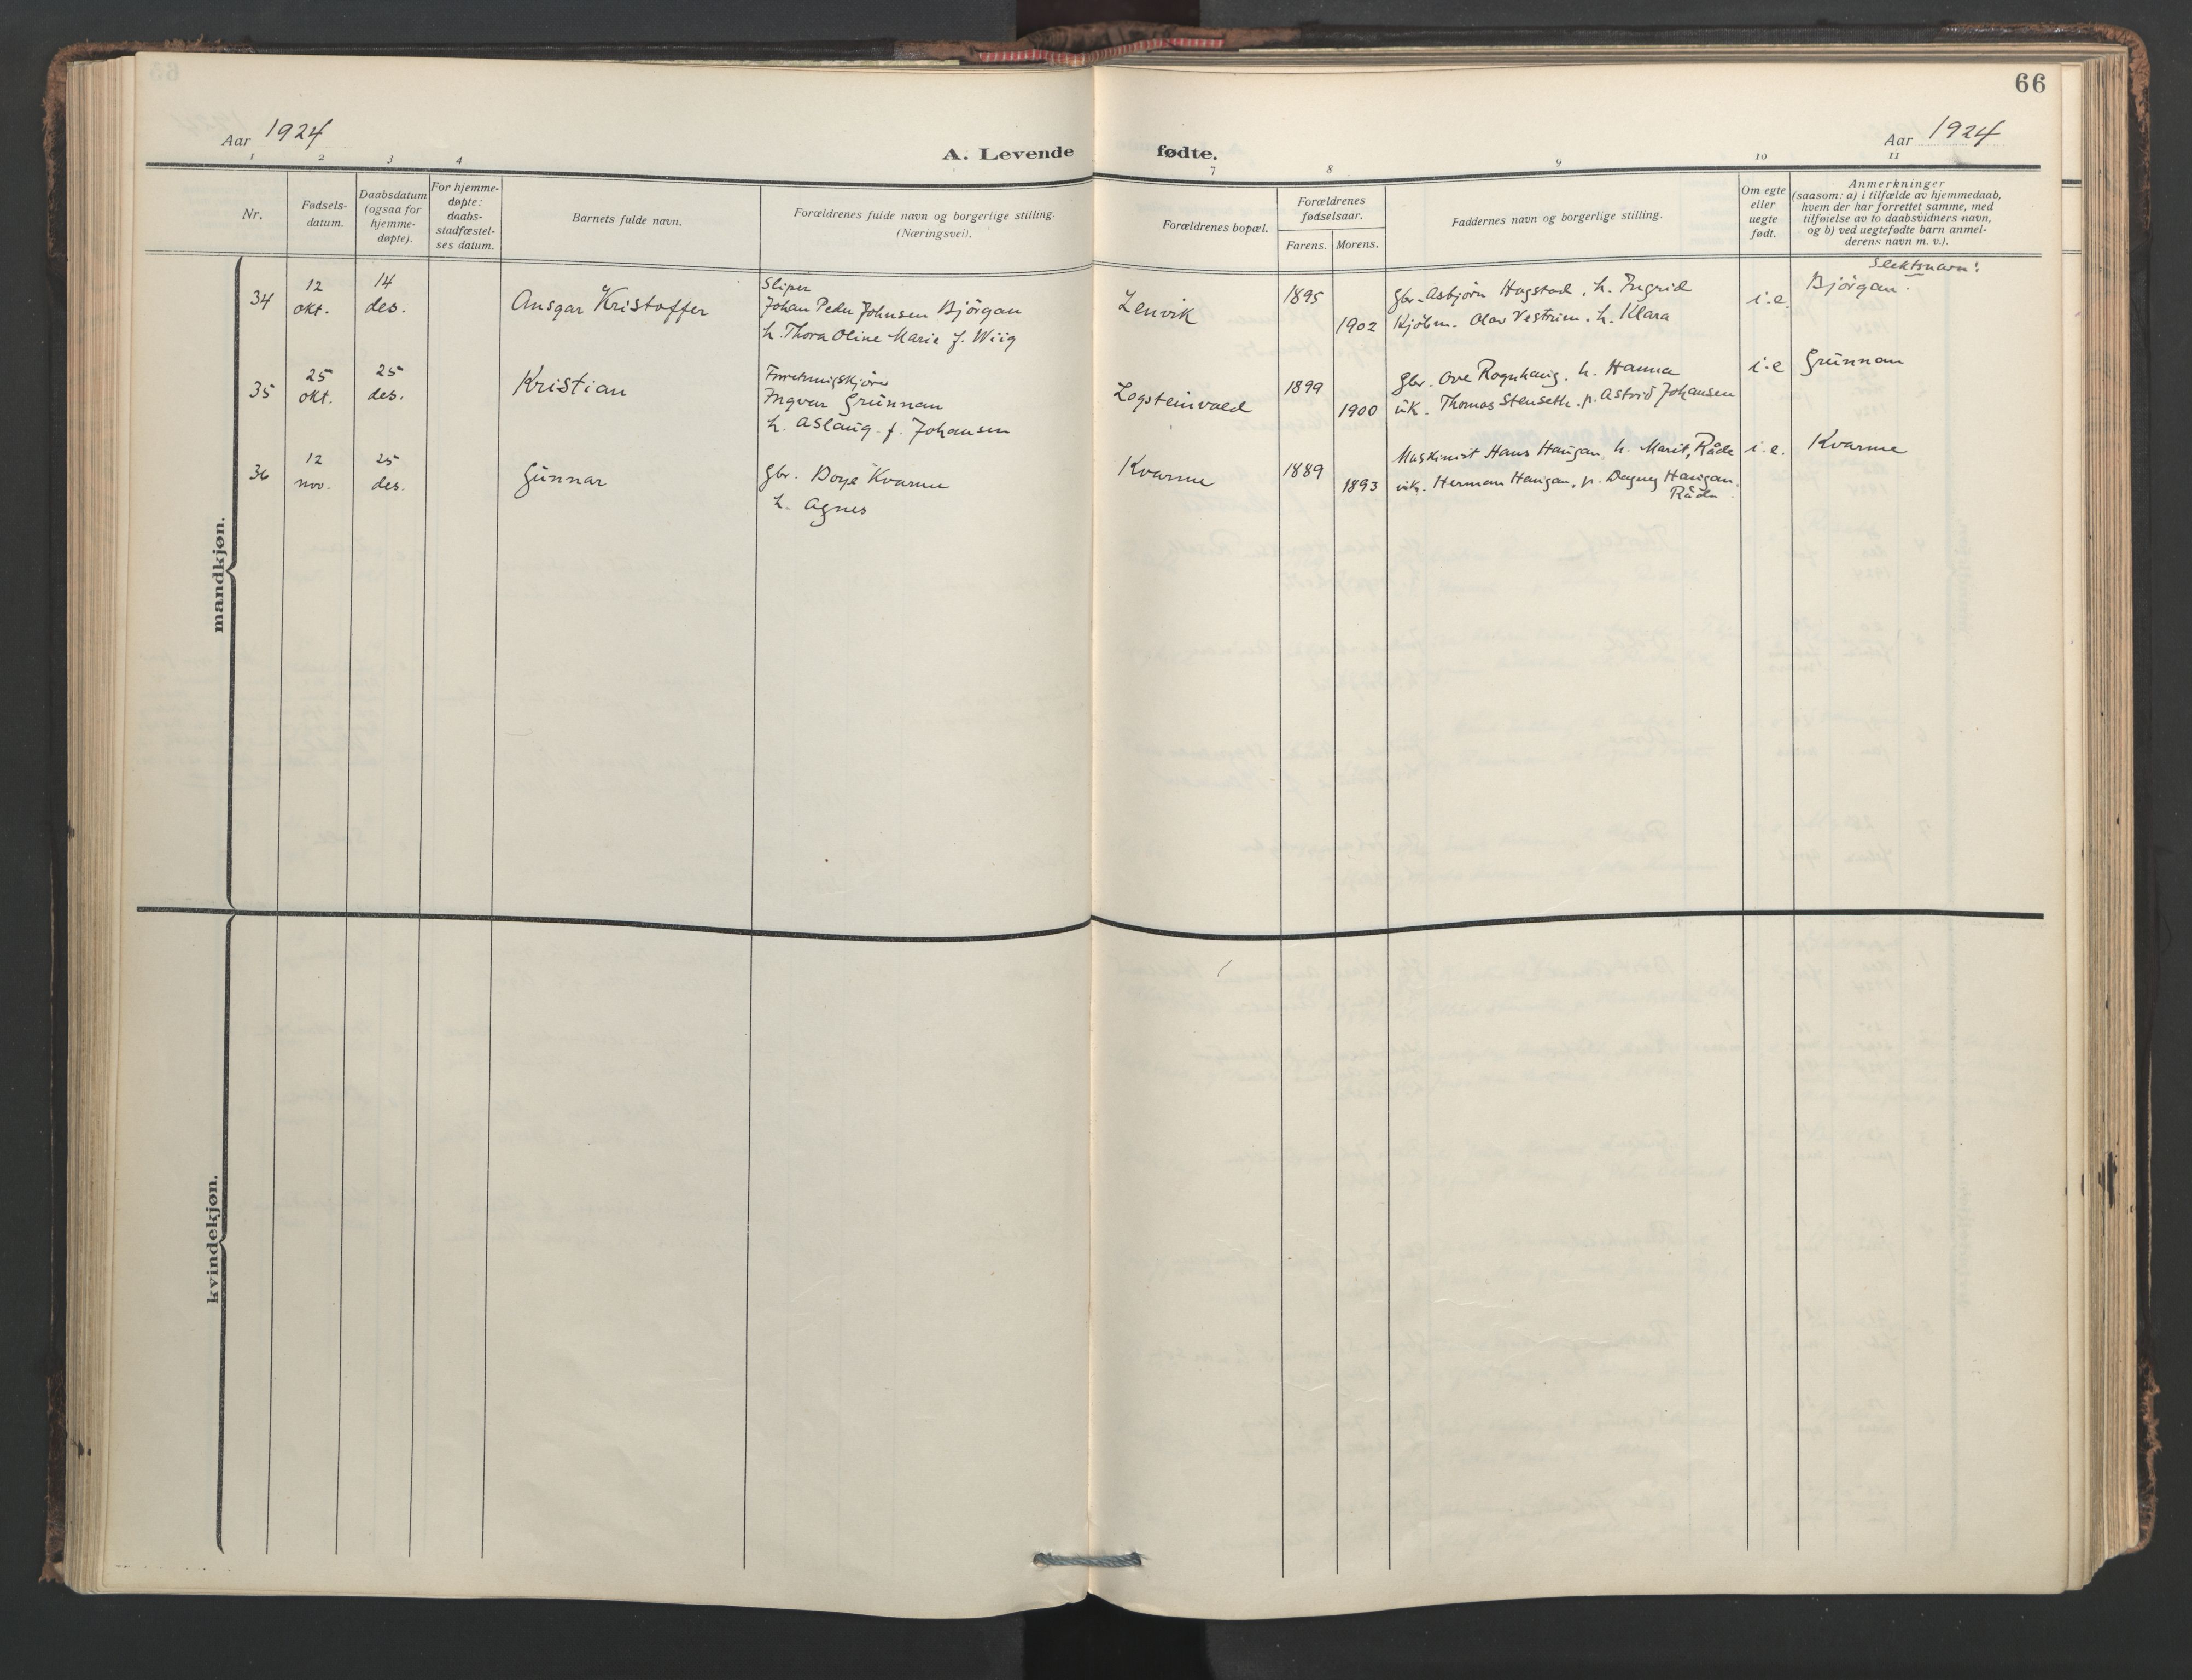 66
Aar 1924
Aar 1924
A. Levende fødte.
1 2 3 4 7 8 9 10 11
Nr.
Fødsels-
datum.
Daabsdatum
(ogsaa for
hjemme-
døpte).
For hjemme-
døpte:
daabs-
stadfæstel-
ses datum.
Barnets fulde navn.
Forældrenes fulde navn og borgerlige stilling.
(Næringsvei).
Forældrenes bopæl.
Forældrenes
fødselsaar.
Farens. Morens.
Faddernes navn og borgerlige stilling.
Om egte
eller
uegte
født.
Anmerkninger
(saasom: a) i tilfælde av hjemmedaab,
hvem der har forrettet samme, med
tilføielse av to daabsvidners navn,
og b) ved uegtefødte barn anmel-
derens navn m. v.).
Slektsnavn:
mandkjøn.
34
12
okt.
14
des.
Ansgar Kristoffer
Sliper
Johan Peder Johnsen Bjørgan
h. Thora Oline Marie f. Wiig
Lenvik
1895
1902
gbr. Asbjørn Hogstad, h. Ingrid
Kjøbm. Olav Vestrum, h. Klara
i.e.
Bjørgan.
35
25
okt.
25
des.
Kristian
Ingvar Grünnan
h. Aslaug f. Johansen
Logsteinvald
1899
1900
gbr. Ove Rognhaug, h. Hanna
uk. Thomas Stenseth, p. Astrid Johansen
i.e
Grünnan
36
12
nov.
25
des.
Gunnar
gbr. Dorje Kvarme
h. Agnes
Kvarme
1889
1893
Maskinist Hans Haugan, h. Marit, Råde
uk. Herman Haugan, p. Dagny Haugan.
Råde
i.e.
Kvarme
kvindekjøn.